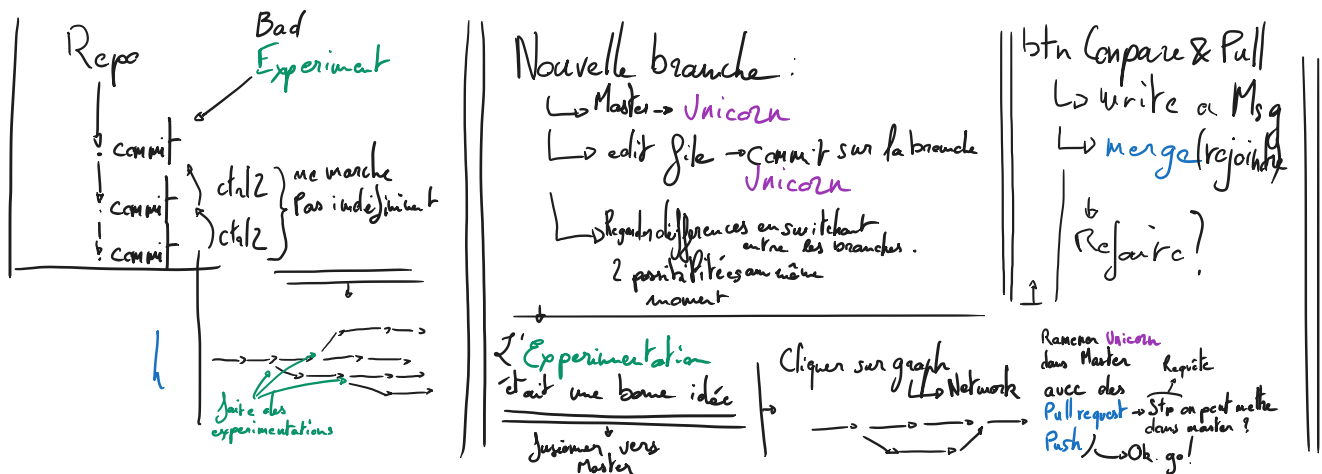 Repo
Bad
Experiment
commit
commit
commit
ctrl2
ctrl2
ne marche
pas indéfiniment
h
faire des
experimentations
Nouvelle branche :
Master → Unicorn
edit file → Commit sur la branche
Unicorn
Regarder différences en switchant
entre les branches.
2 possibilitées au même
moment
L'Experimentation
était une bonne idée
fusionner vers
Master
Cliquer sur graph
Network
btn Conpare & Pull
write a Msg
merge (rejoindre)
Refaire ?
Ramener Unicorn
dans Master
avec des
Pull request → Stp on peut mettre
dans master ?
Requête
Push
Ok. go!